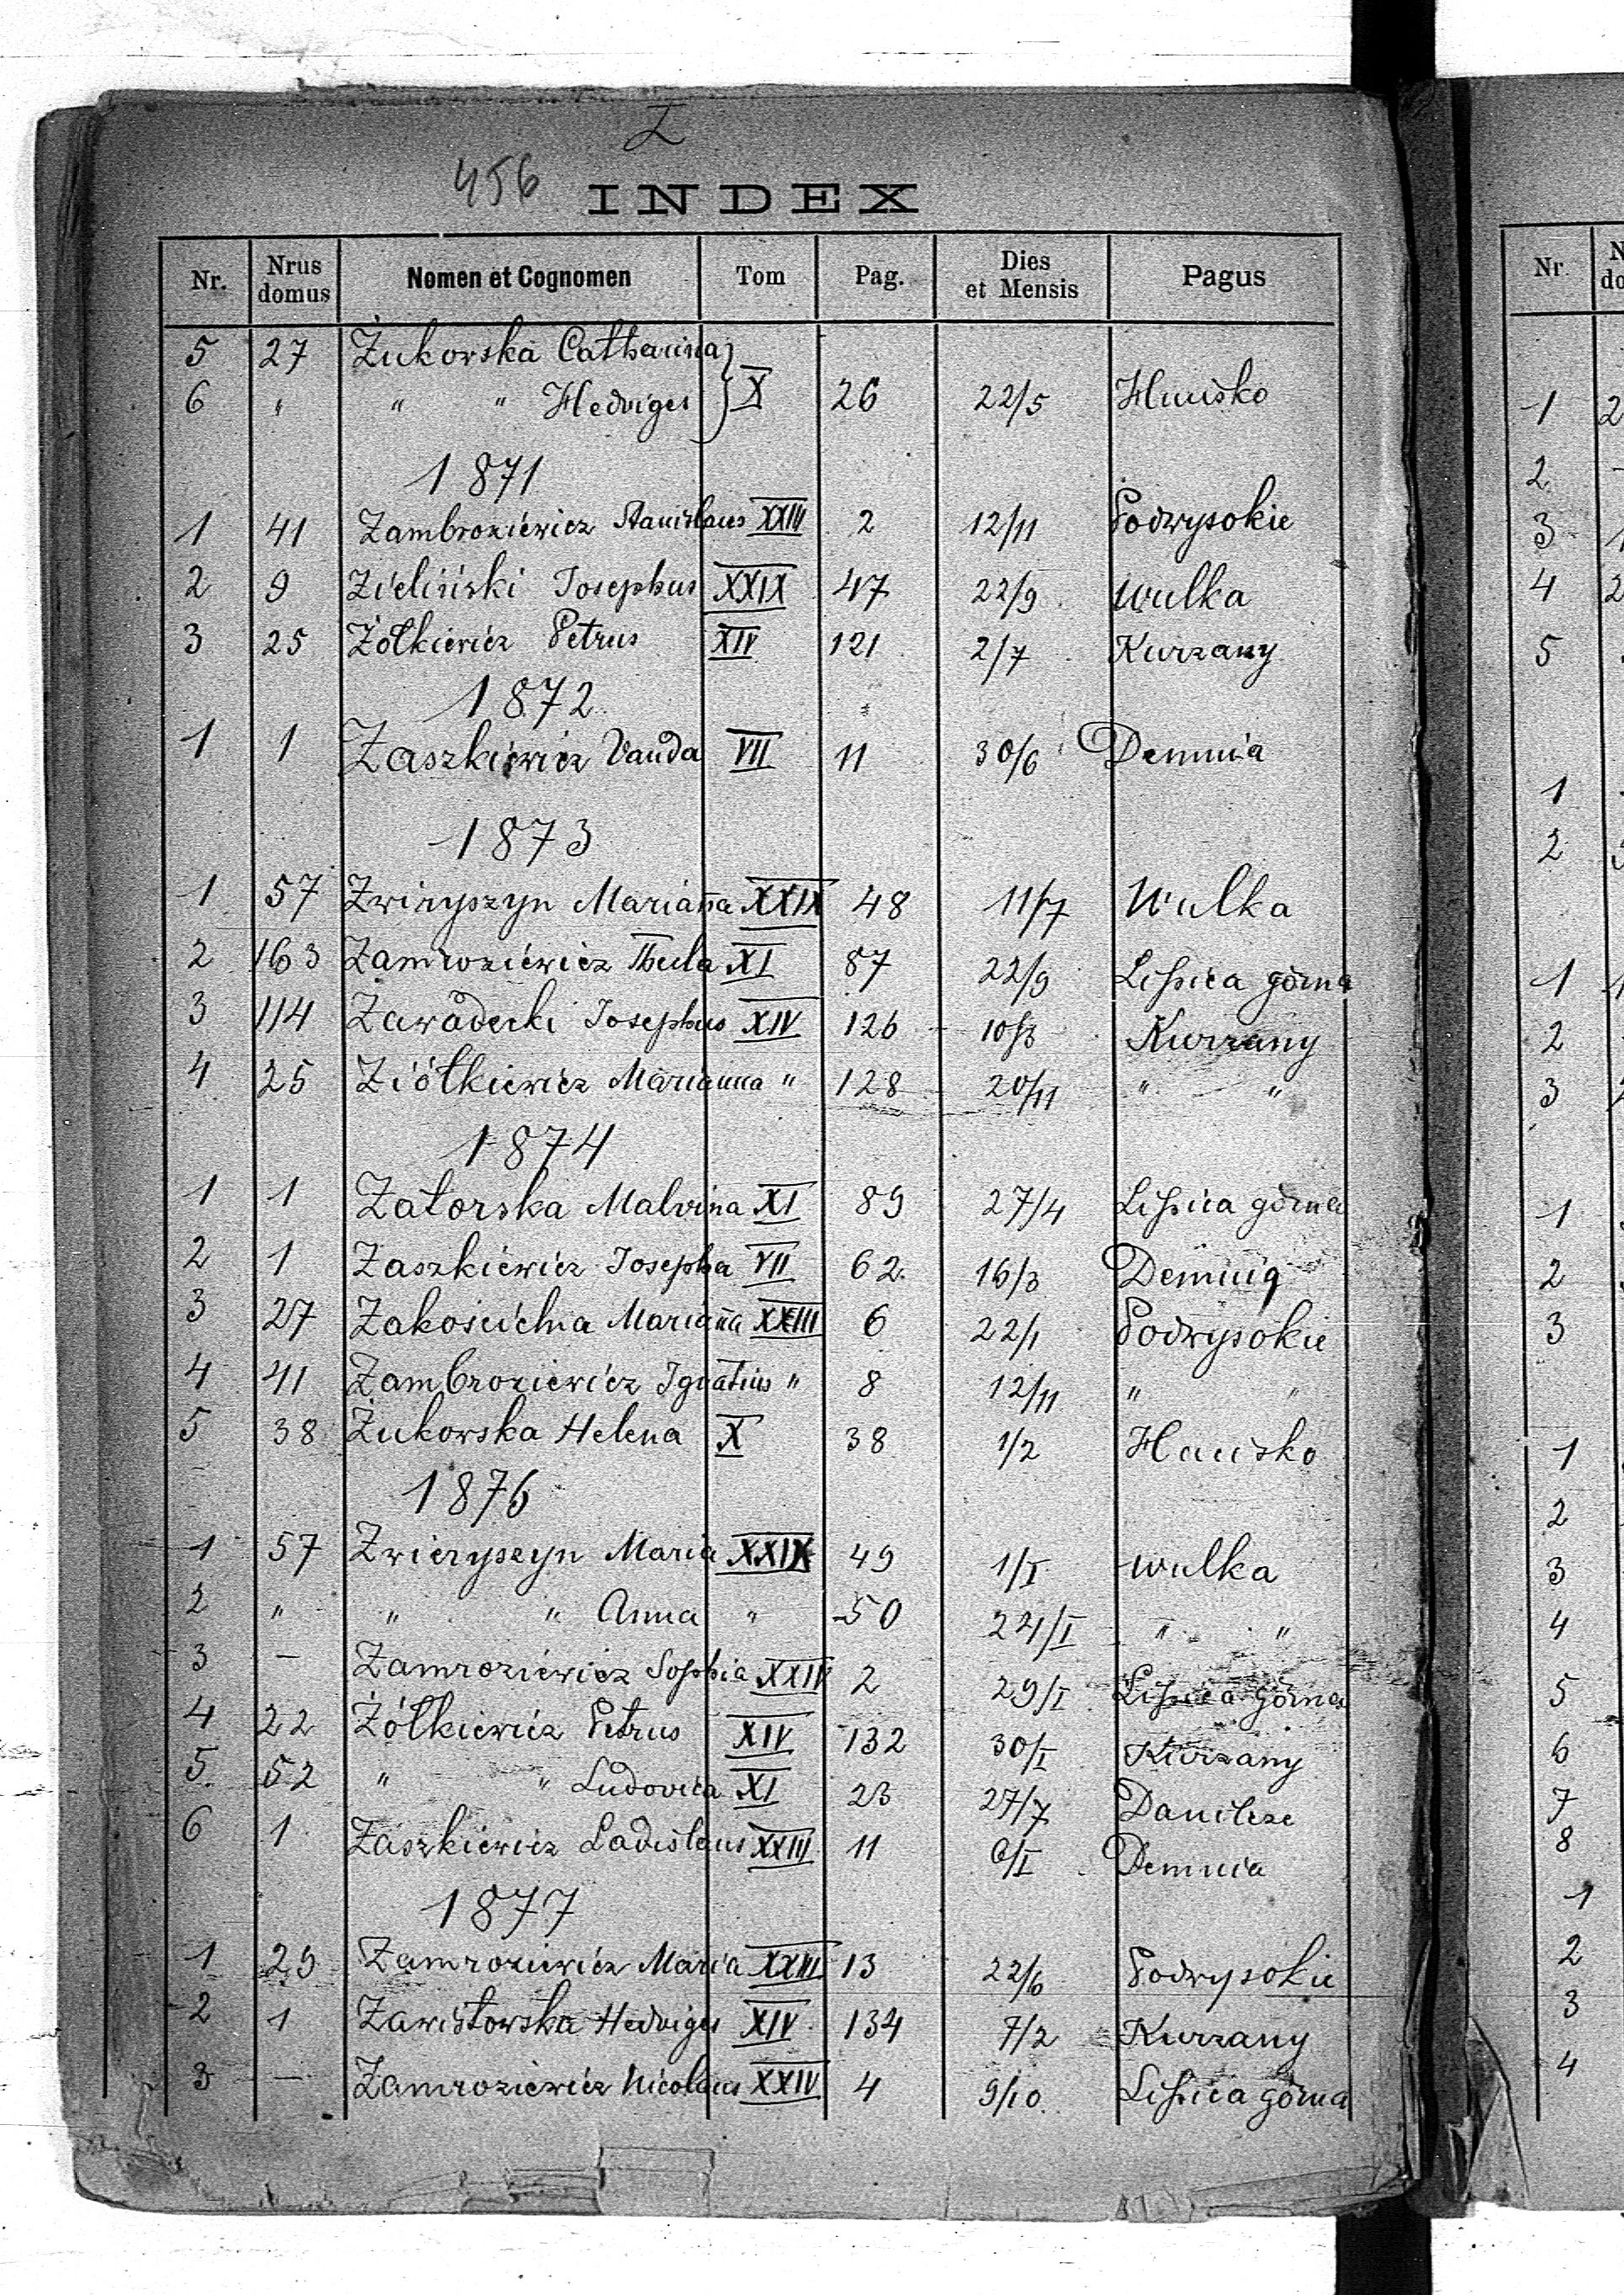 Z
456
INDEX
Nr. Nrus domus Nomen et Cognomen Tom Pag. Dies et Mensis Pagus
5 27 Żukowska Catharina } X 26 22/5 Hucisko
6 " " " Hedviges
1871
1 41 Zambroziewicz Stanislaus XXIII 2 12/11 Podwysokie
2 9 Zieliński Josephus XXIX 47 22/9 Wulka
3 25 Żółkiewicz Petrus XIV 121 2/7 Kurzany
1872
1 1 Zaszkiewicz Vanda VII 11 30/6 Demnia
1873
1 57 Zwiryszyn Marianna XXIX 48 11/7 Wulka
2 163 Zamroziewicz Thecla XI 87 22/9 Lipica górna
3 114 Zawadecki Josephus XIV 126 10/3 Kurzany
4 25 Ziółkiewicz Marianna " 128 20/11 " "
1874
1 1 Zatorska Malvina XI 89 27/4 Lipica górna
2 1 Zaszkiewicz Josepha VII 62 16/3 Demnia
3 27 Zakościelna Marianna XXIII 6 22/1 Podwysokie
4 41 Zambroziewicz Ignatius " 8 12/11 " "
5 38 Żukowska Helena X 38 1/2 Hucisko
1876
1 57 Zwieryszyn Maria XXIX 49 1/I Wulka
2 " " " Anna " 50 24/I " "
3 — Zamroziewicz Sophia XXIV 2 29/I Lipica górna
4 22 Żółkiewicz Petrus XIV 132 30/I Kurzany
5. 52 " " Ludovica XI 23 27/7 Danilcze
6 1 Zaszkiewicz Ladislaus XXIII 11 6/I Demnia
1877
1 29 Zamroziewicz Maria XXIII 13 22/6 Podwysokie
2 1 Zawistowska Hedviges XIV 134 7/2 Kurzany
3 — Zamroziewicz Nicolaus XXIV 4 9/10 Lipica górna
Nr
1 2
2
3 1
4 2
5
1
2
1
2
3
1
2
3
1
2
3
4
5
6
7
8
1
2
3
4